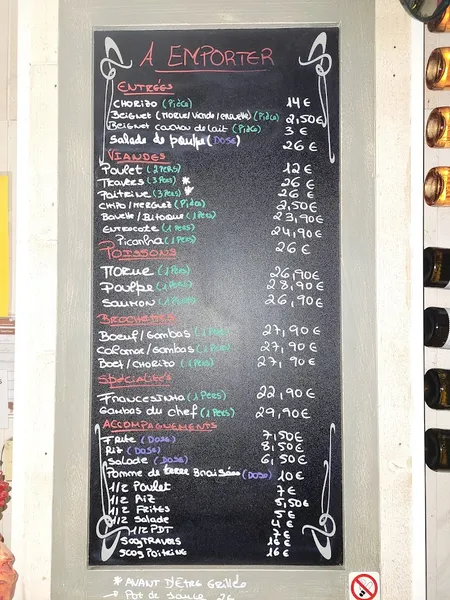 A EMPORTER
ENTRÉES
CHORIZO (Pièce) 14 €
Beignet (MORUE/Viande/CREVETTE) (Pièce) 2,50€
Beignet cochon de lait (Pièce) 3 €
Salade de poulpe (DOSE) 26 €
VIANDES
Poulet (2 PERS) 12 €
TRAVERS (3 PERS) * 26 €
POITRINE (3 PERS) * 26 €
CHIPO/MERGUEZ (Pièce) 2,50€
BAVETTE/BITOQUE (1 PERS) 23,90€
ENTRECOTE (1 PERS) 24,90€
Picanha (1 PERS) 26 €
POISSONS
MORUE (1 PERS) 26,90€
Poulpe (1 PERS) 28,90€
SAUMON (1 PERS) 26,90€
BROCHETTES
Boeuf/Gambas (1 PERS) 27,90€
Calamar/Gambas (1 PERS) 27,90€
Boef/CHORIZO (1 PERS) 27,90€
Spécialités
FRANCESINHA (1 PERS) 22,90€
Gambas du chef (1 PERS) 29,90€
ACCOMPAGNEMENTS
FRITE (DOSE) 7,50€
RIZ (DOSE) 8,50€
Salade (DOSE) 6,50€
Pomme de terre Braisées (DOSE) 10 €
1/2 Poulet 7 €
1/2 RIZ 5,50€
1/2 FRITES 5 €
1/2 Salade 4 €
1/2 PDT 7 €
500g TRAVERS 16 €
500g Poitrine 16 €
* AVANT D'ÊTRE Grillée
→ Pot de sauce 2€